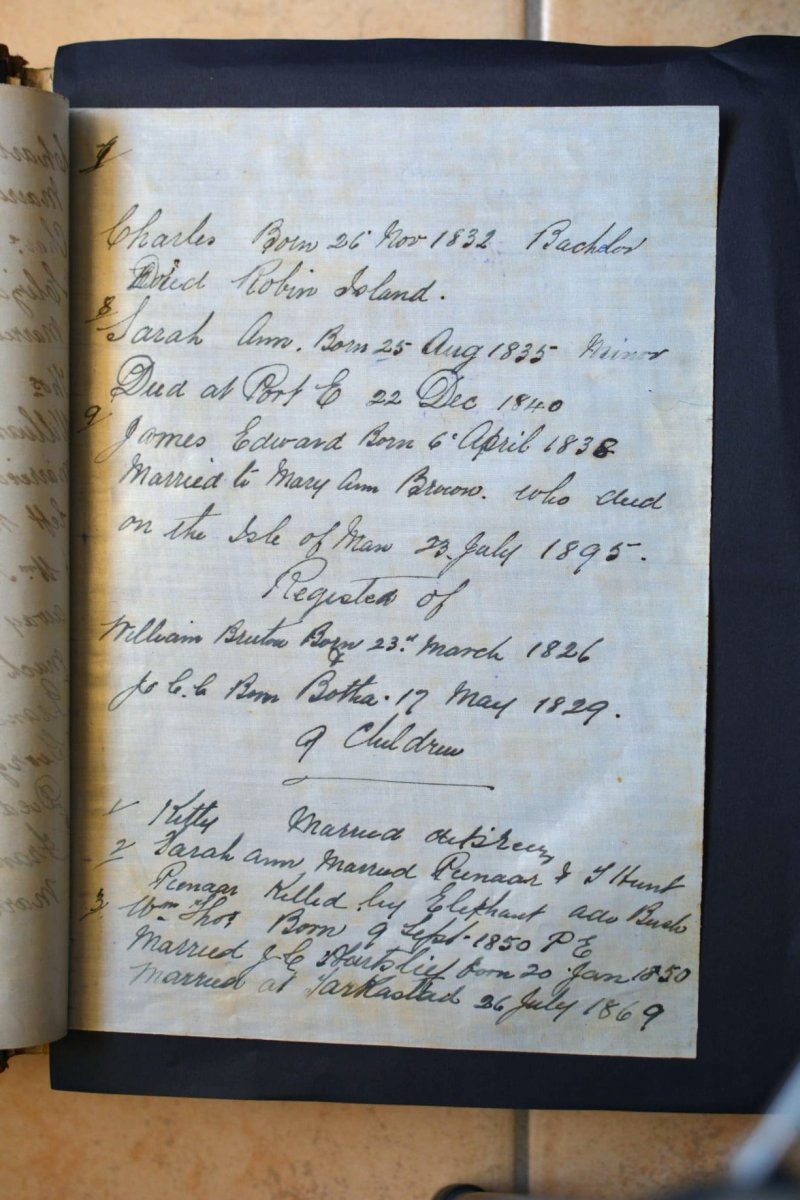 7
Charles Born 26 Nov 1832 Bachelor
Died Robin Island.
8 Sarah Ann. Born 25 Aug 1835 Minor
Died at Port E 22 Dec 1840
9 James Edward Born 6 April 1838
Married to Mary Ann Brown. who died
on the Isle of Man 23 July 1895.
Register of
William Bruton Born 23rd March 1826
&
J. C. C Born Botha. 17 May 1829.
9 Children
1 Kitty Married de Breen
2 Sarah ann Married Pienaar & T Hunt
Pienaar Killed by Elephant ado Bush
3 Wm Thos Born 9 Sept. 1850 P E
Married J. C Hartslief born 20 Jan 1850
Married at Tarkastad 26 July 1869